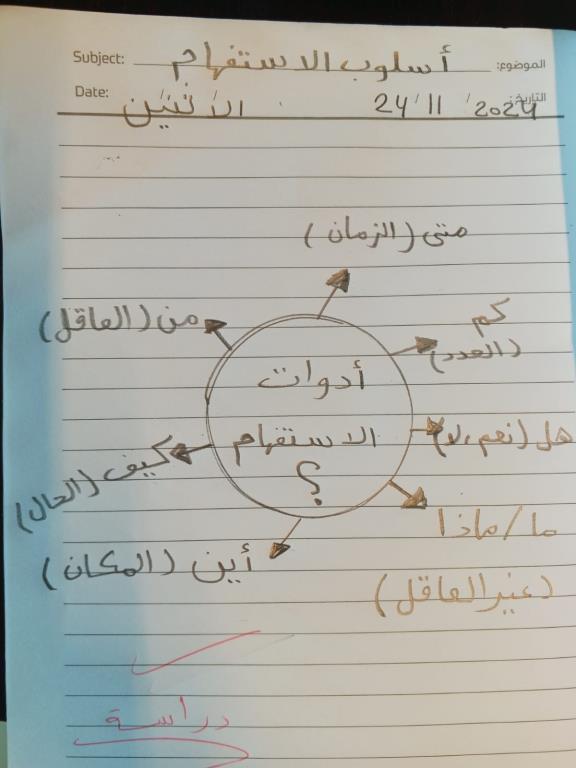 Subject: أسلوب الاستفهام الموضوع:
Date: الأثنين 24/11/2024 التاريخ:
متى (الزمان)
كم
(العدد)
من (العاقل)
أدوات
الاستفهام
؟
هل (نعم، لا)
كيف (الحال)
ما/ماذا
(غير العاقل)
أين (المكان)
دراسة